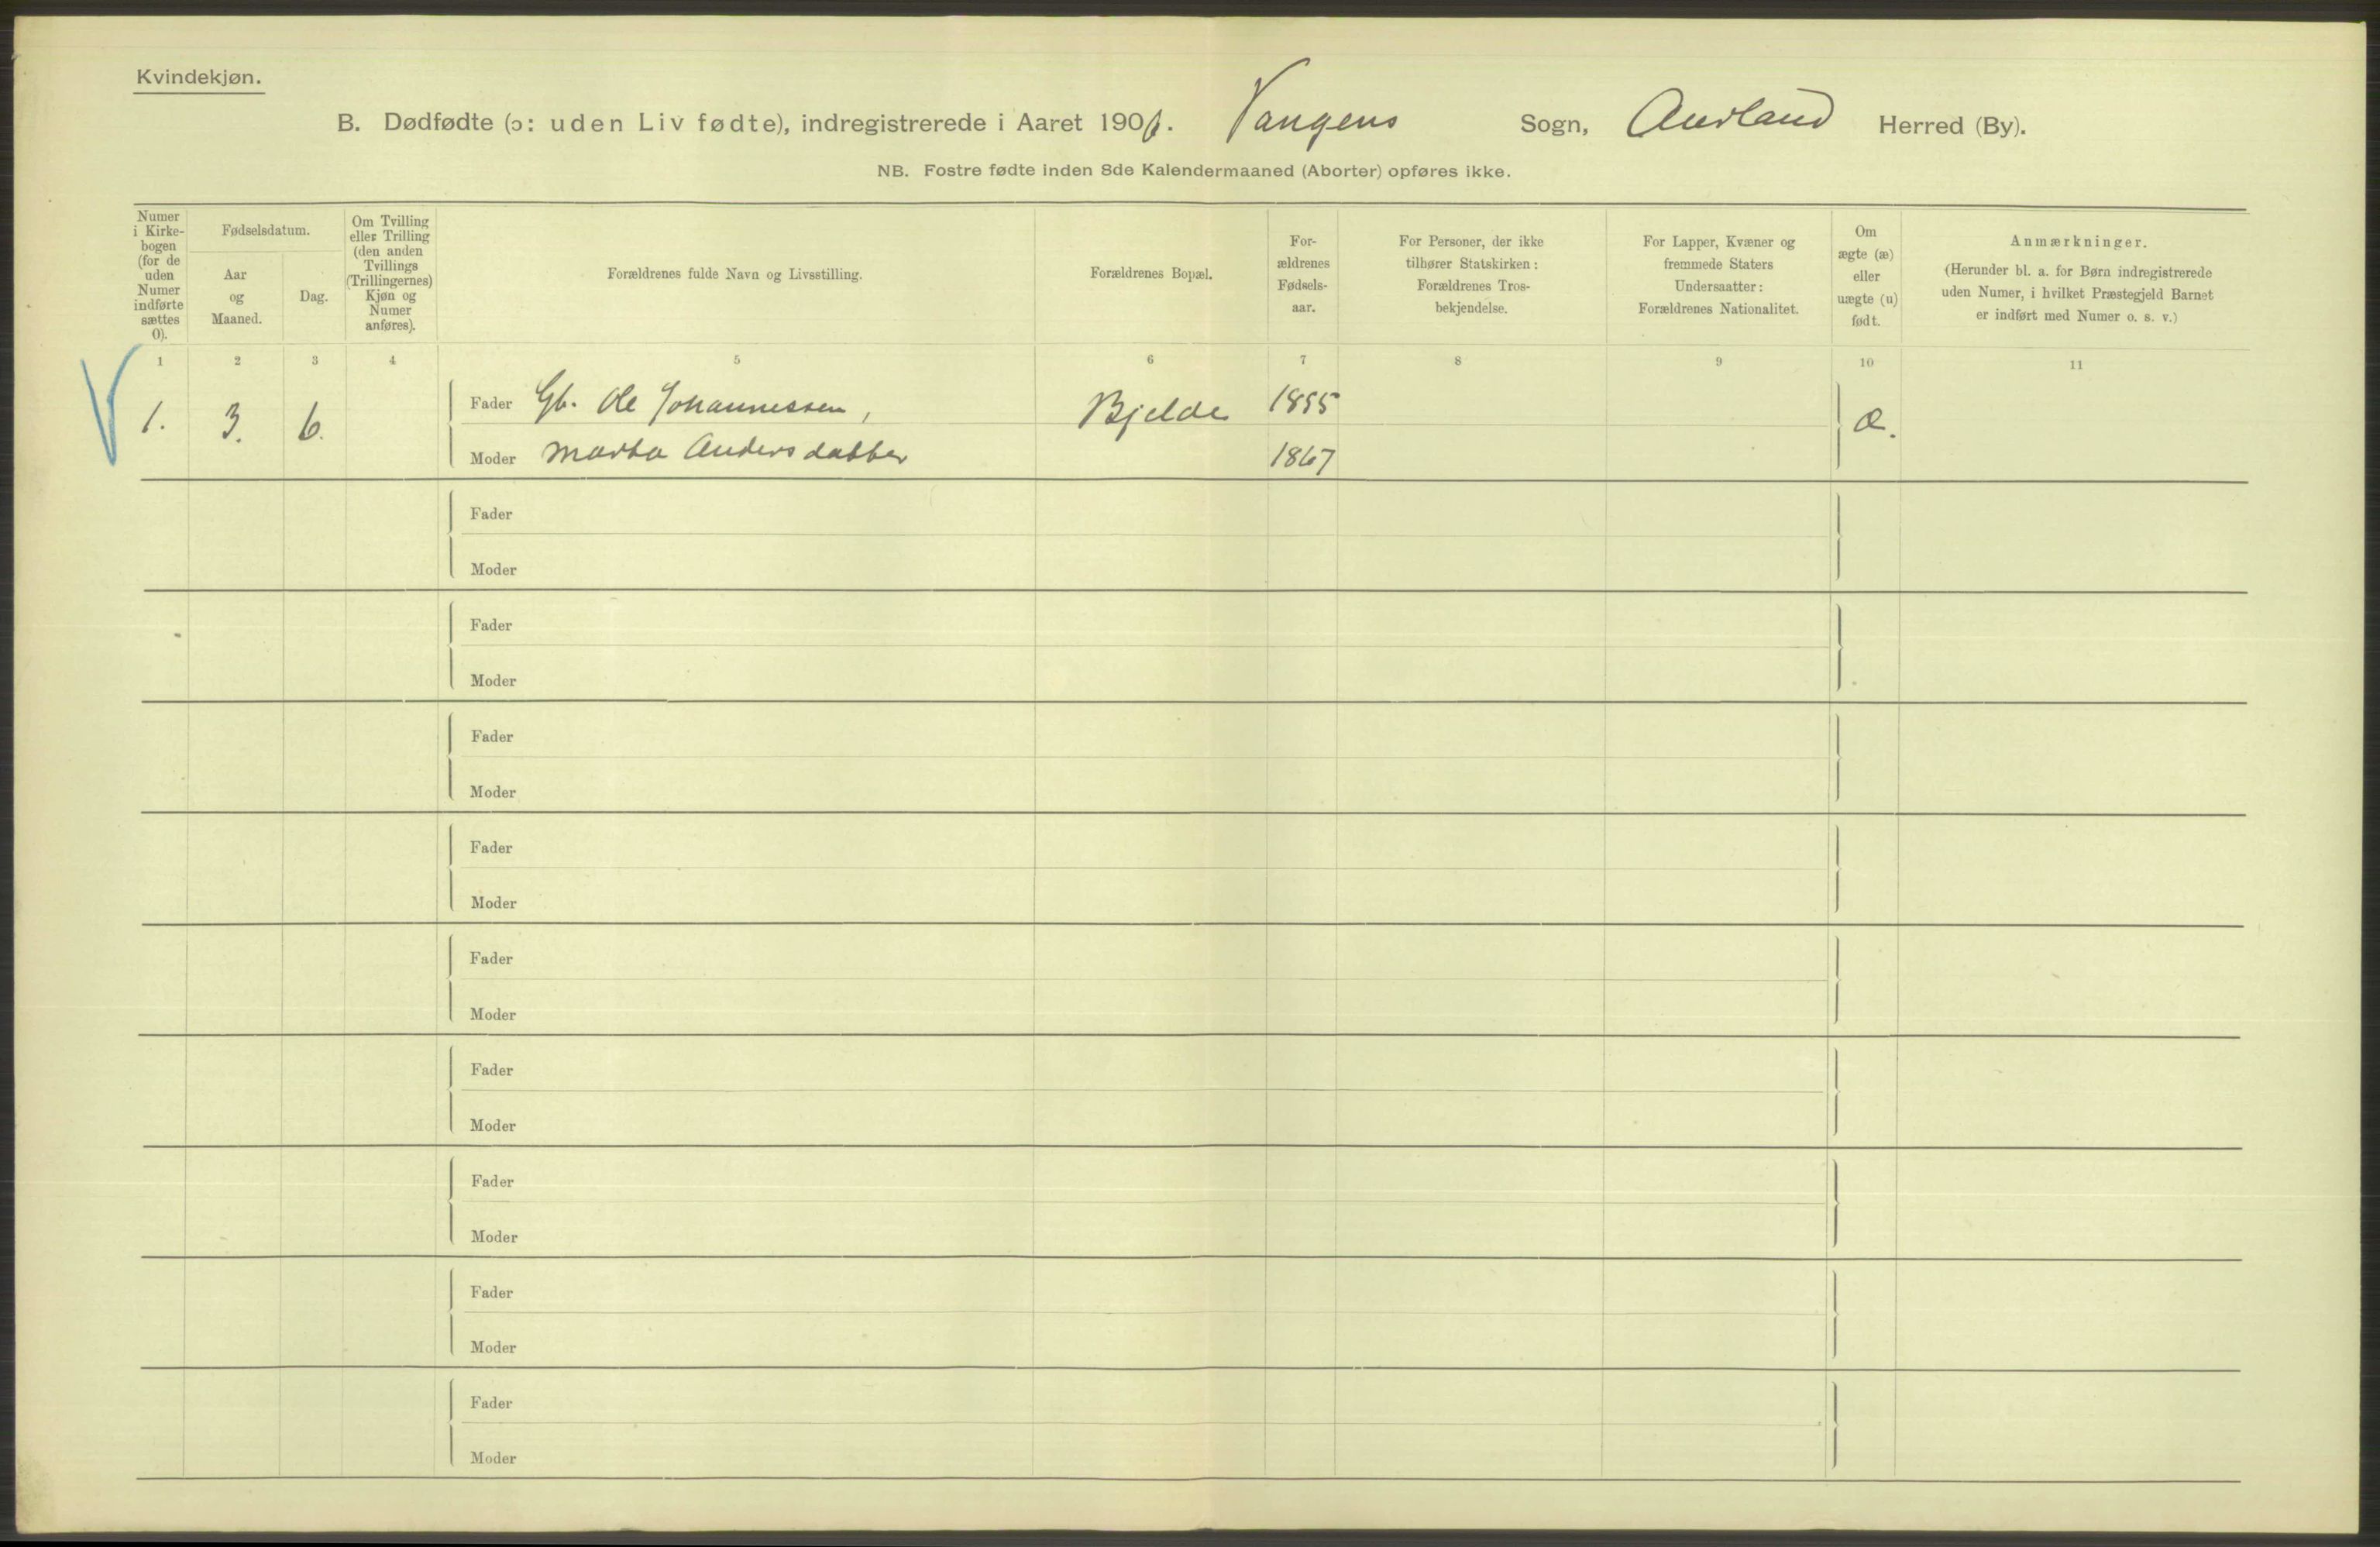 Kvindekjøn.
B. Dødfødte (ɔ: uden Liv fødte), indregistrerede i Aaret 1906. Vangens Sogn, Aurland Herred (By).
NB. Fostre fødte inden 8de Kalendermaaned (Aborter) opføres ikke.
Numer
i Kirke-
bogen
(for de
uden
Numer
indførte
sættes
0).
Fødselsdatum.
Aar
og
Maaned.
Dag.
Om Tvilling
eller Trilling
(den anden
Tvillings
(Trillingernes)
Kjøn og
Numer
anføres).
Forældrenes fulde Navn og Livsstilling.
Forældrenes Bopæl.
For-
ældrenes
Fødsels-
aar.
For Personer, der ikke
tilhører Statskirken:
Forældrenes Tros-
bekjendelse.
For Lapper, Kvæner og
fremmede Staters
Undersaatter:
Forældrenes Nationalitet.
Om
ægte (æ)
eller
uægte (u)
født.
Anmærkninger.
(Herunder bl. a. for Børn indregistrerede
uden Numer, i hvilket Præstegjeld Barnet
er indført med Numer o. s. v.)
1 2 3 4 5 6 7 8 9 10 11
1. 3. 6. Fader Gb. Ole Johannessen, Bjelde 1855 æ.
Moder Marta Andersdatter 1867
Fader
Moder
Fader
Moder
Fader
Moder
Fader
Moder
Fader
Moder
Fader
Moder
Fader
Moder
Fader
Moder
Fader
Moder